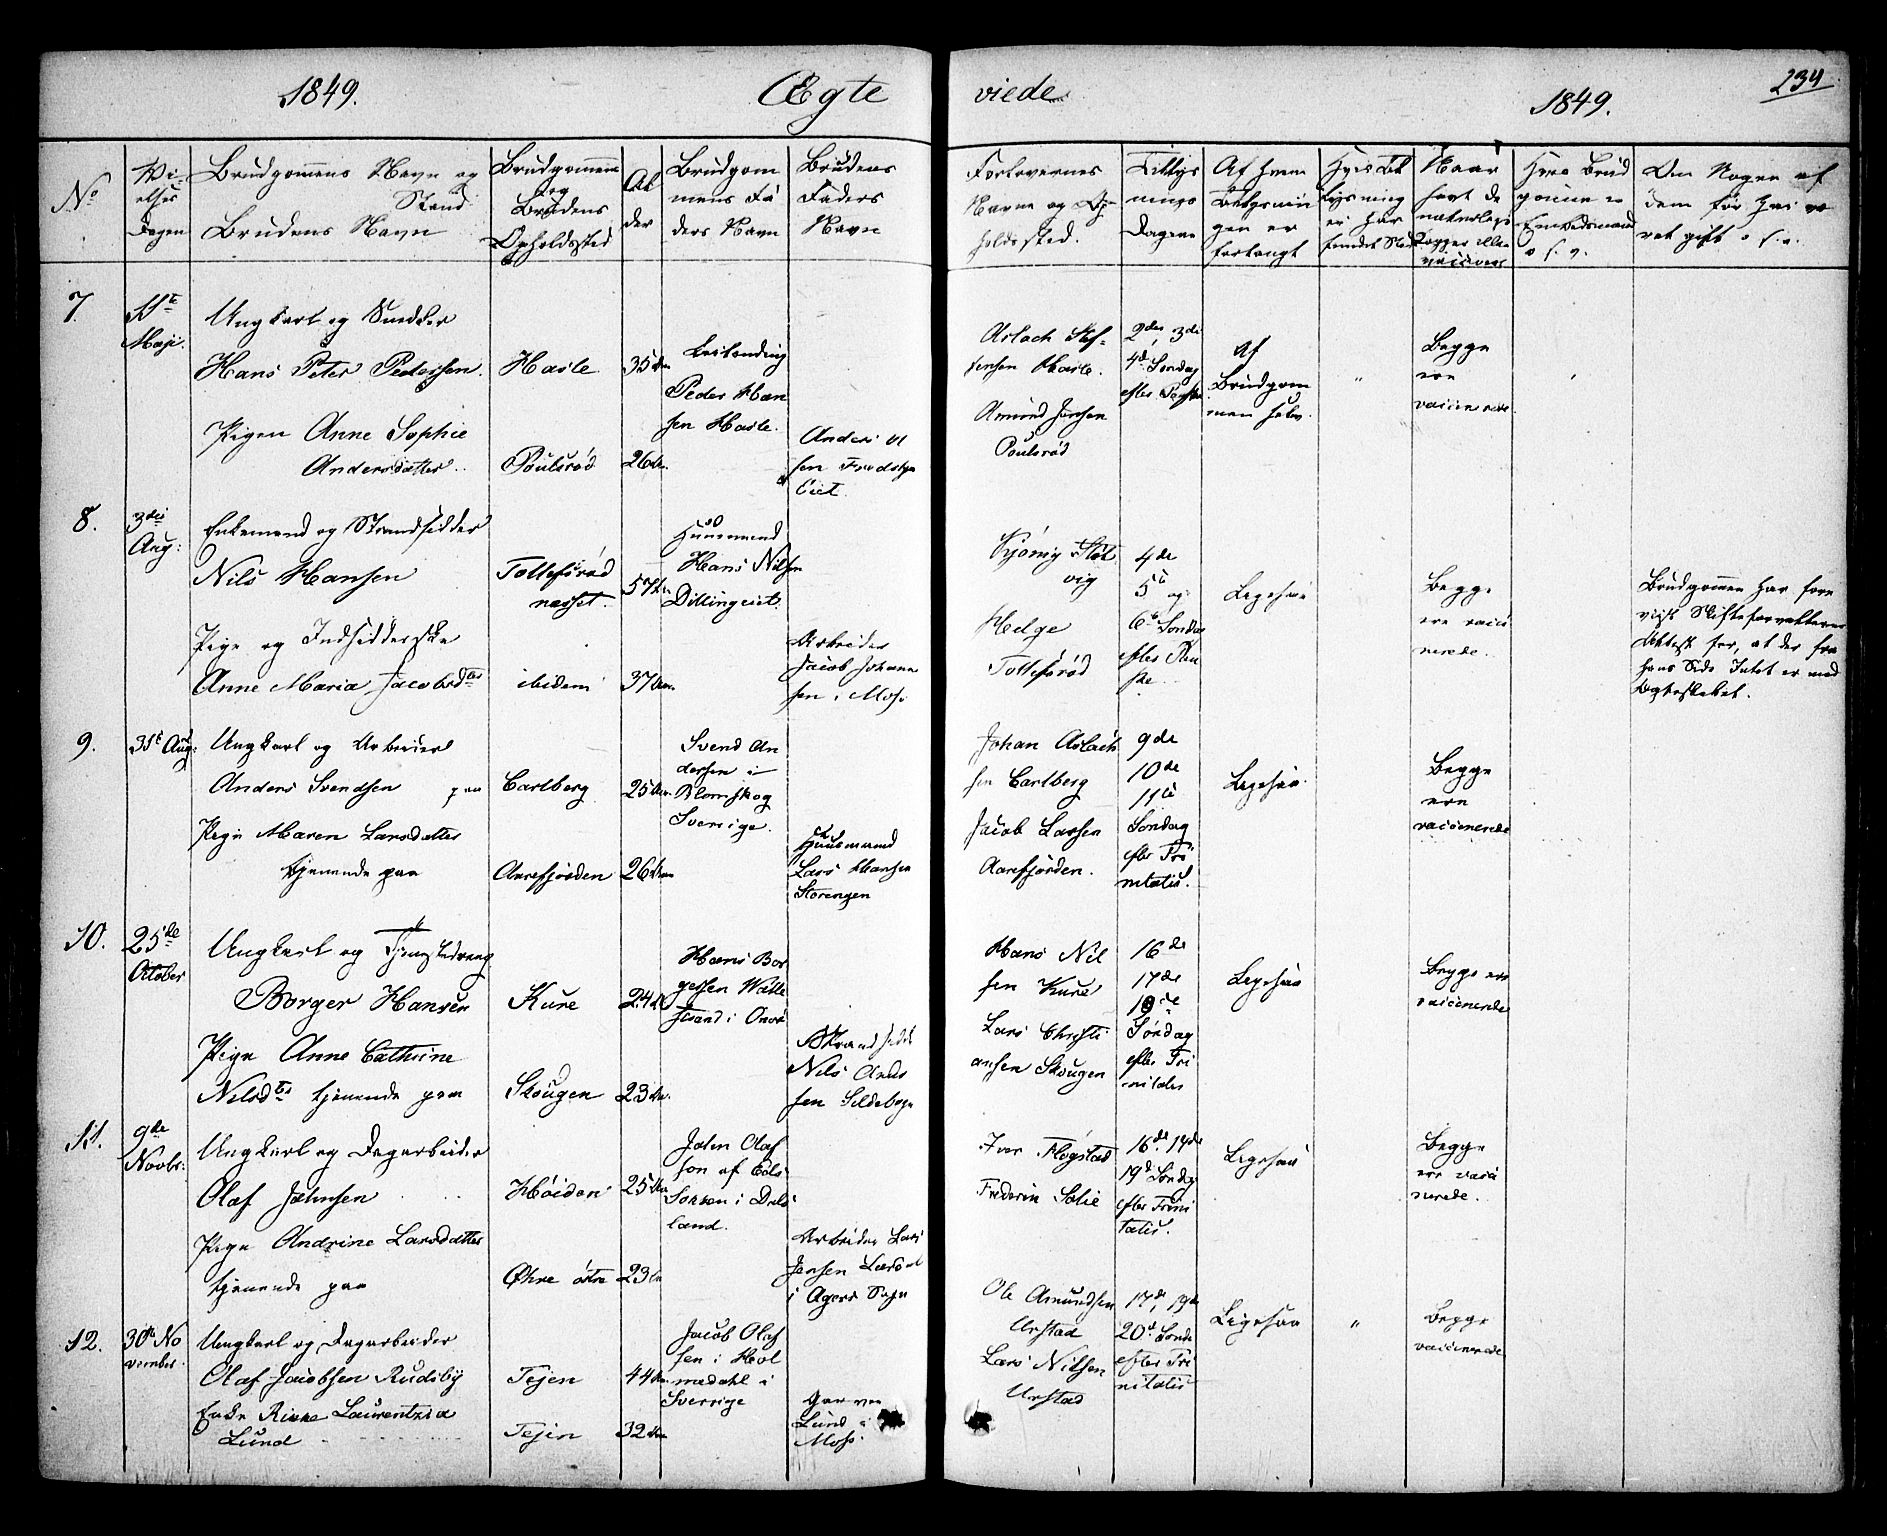 1849. Ægte
viede 1849. 234
No
Vi-
elses
Dagen
Brudgommens Navn og
Stand
Brudens Navn
Brudgommens
og
Brudens
Opholdssted
Al
der
Brudgom
mens Fa
ders Navn
Brudens
Faders
Navn
Forlovernes
Navne og Op-
holdssted.
Tillys
nings
Dagene
Af hvem
Lysnin
gen er
forlangt
Naar
havt de
Hvis Brud
gommen er
Embedsmand
o. s. v.
Om Nogen af
dem før har væ
ret gift o. s. v.
7.
11te
Maji.
Ungkarl og Snedker
Hans Peter Pedersen.
Pigen Anne Sophie
Andersdatter.
Hasle
Poulsrød
35 Aar
26 Aar
Peder Han
sen Hasle.
Anders Ol
sen
Eiet.
Aslach Stef-
fensen Hasle.
Amund Jensen
Poulsrød
2den, 3die
4de Søndag
efter Paaske
Af
Brudgom
men selv.
"
Begge
ere
vaccinerede.
8.
3die
Aug:
Enkemand og Strandsidder
Nils Hansen
Pige og Indsidderske
Anne Maria Jacobsdter
Tollefsrød
næsset.
ibidem
57 Aar
37 Aar
Huusmand
Hans Nilsen
Dillingeiet.
Arbeider
Jacob Johann
sen i Moss
vig
Helge
Tollefsrød
4de
5te og
6te Søndag
efter Paa
ske
Ligesaa
Begge
ere vacci
nerede.
Brudgommen har fore
viist Skifteforvalterens
Attest for, at der fra
hans Side Intet er mod
Ægteskabet.
9.
31te Aug:
Ungkarl og Arbeider
Anders Svendsen paa
Pige Maren Larsdatter
tjenende paa
Carlberg
Aarefjorden
25 Aar
26 Aar
Svend An
dersen i
Blomskog
Sverrige.
Huusmand
Lars Hansen
Storengen
Johan Aslach
sen Carlberg
Jacob Larsen
Aarefjorden.
9de
10de
11te
Søndag
efter Tri
nitatis.
Ligesaa
Begge
ere
vaccinerede
10.
25de
October
Ungkarl og Tjenestedreng
Borger Hansen
Pige Anne Cathrine
Nilsdtr tjenende paa
Kure
Skougen
24 Aar
23 Aar.
Hans Bor
gersen
i Onsø
Strandsidd
Nils Anders
sen Sildebogn
Hans Nil
sen Kure
Lars Christi
ansen Skougen
16de
17de
18de
Søndag
efter Tri
nitatis
Ligesaa
Begge ere
vaccinerede
11.
9de
Novbr:
Ungkarl og Dagarbeider
Olaf Johnsen
Pige Andrine Larsdatter
tjenende paa
Høiden
Øhre østre
25 Aar
23 Aar
John Olaf
son af
i Dals
land.
Arbeider Lars
Jensen
i Agers Sogn
Iver Flogstad
16de, 17de
19de Søndag
efter Trini
tatis.
Ligesaa
Begge
ere vacci
nerede.
12.
30te No
vember
Ungkarl og Dagarbeider
Olaf Jacobsen Rudsby
Enke Laurentzia
Lund
Tejen
Tejen
44 Aar
32 Aar
Jacob Olaf
sen i Hol
medahl i
Sverrige
Garver
Lund i
Moss
Ole Amundsen
Urstad
Lars Nilsen
Urstad
17de, 19de
20de Sønda
efter Tri
nitatis
Ligesaa
"
Begge
vaccinerede